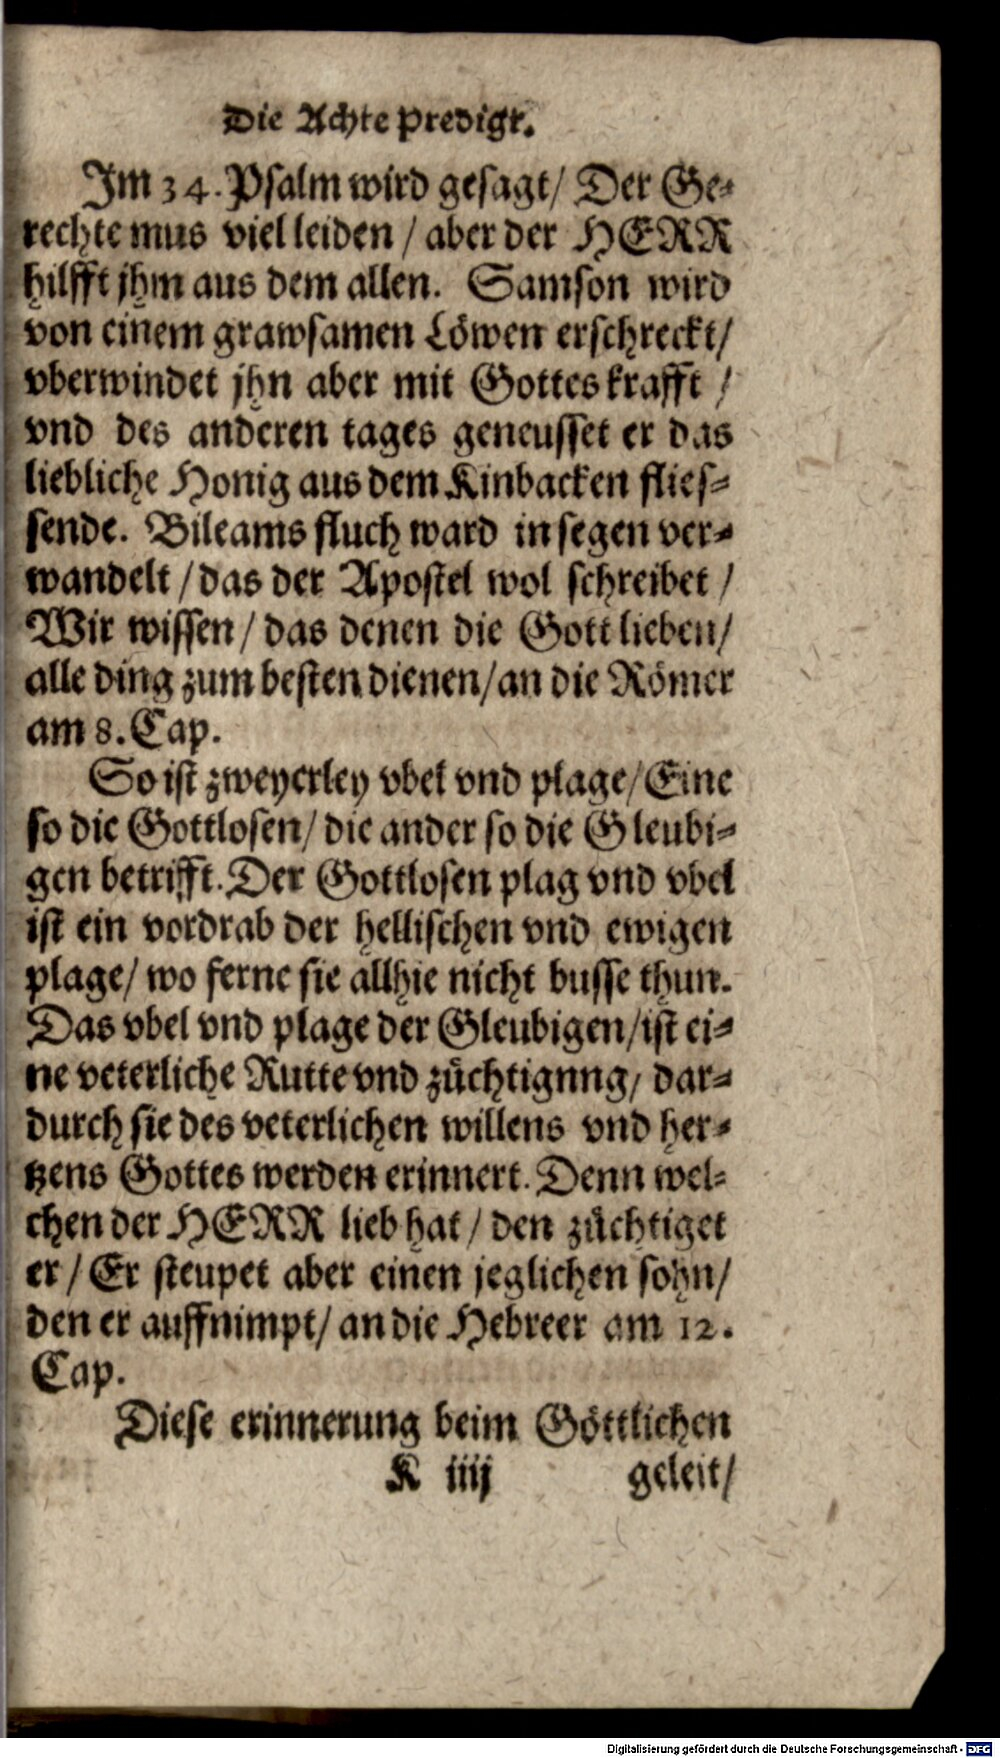 Die Achte Predigt.
Im 34. Psalm wird gesagt/ Der Ge-
rechte mus viel leiden / aber der HERR
hilfft jhm aus dem allen. Samson wird
von einem grawsamen Löwen erschreckt/
vberwindet jhn aber mit Gottes krafft /
vnd des anderen tages geneusset er das
liebliche Honig aus dem Kinbacken flies-
sende. Bileams fluch ward in segen ver-
wandelt / das der Apostel wol schreibet /
Wir wissen / das denen die Gott lieben/
alle ding zum besten dienen/ an die Römer
am 8. Cap.
So ist zweyerley vbel vnd plage/ Eine
so die Gottlosen/ die ander so die Gleubi-
gen betrifft. Der Gottlosen plag vnd vbel
ist ein vordrab der hellischen vnd ewigen
plage/ wo ferne sie allhie nicht busse thun.
Das vbel vnd plage der Gleubigen/ ist ei-
ne veterliche Rutte vnd züchtignng/ dar-
durch sie des veterlichen willens vnd her-
tzens Gottes werden erinnert. Denn wel-
chen der HERR lieb hat / den züchtiget
er / Er steupet aber einen jeglichen sohn/
den er auffnimpt/ an die Hebreer am 12.
Cap.
Diese erinnerung beim Göttlichen
K iiij geleit/
Digitalisierung gefördert durch die Deutsche Forschungsgemeinschaft - DFG